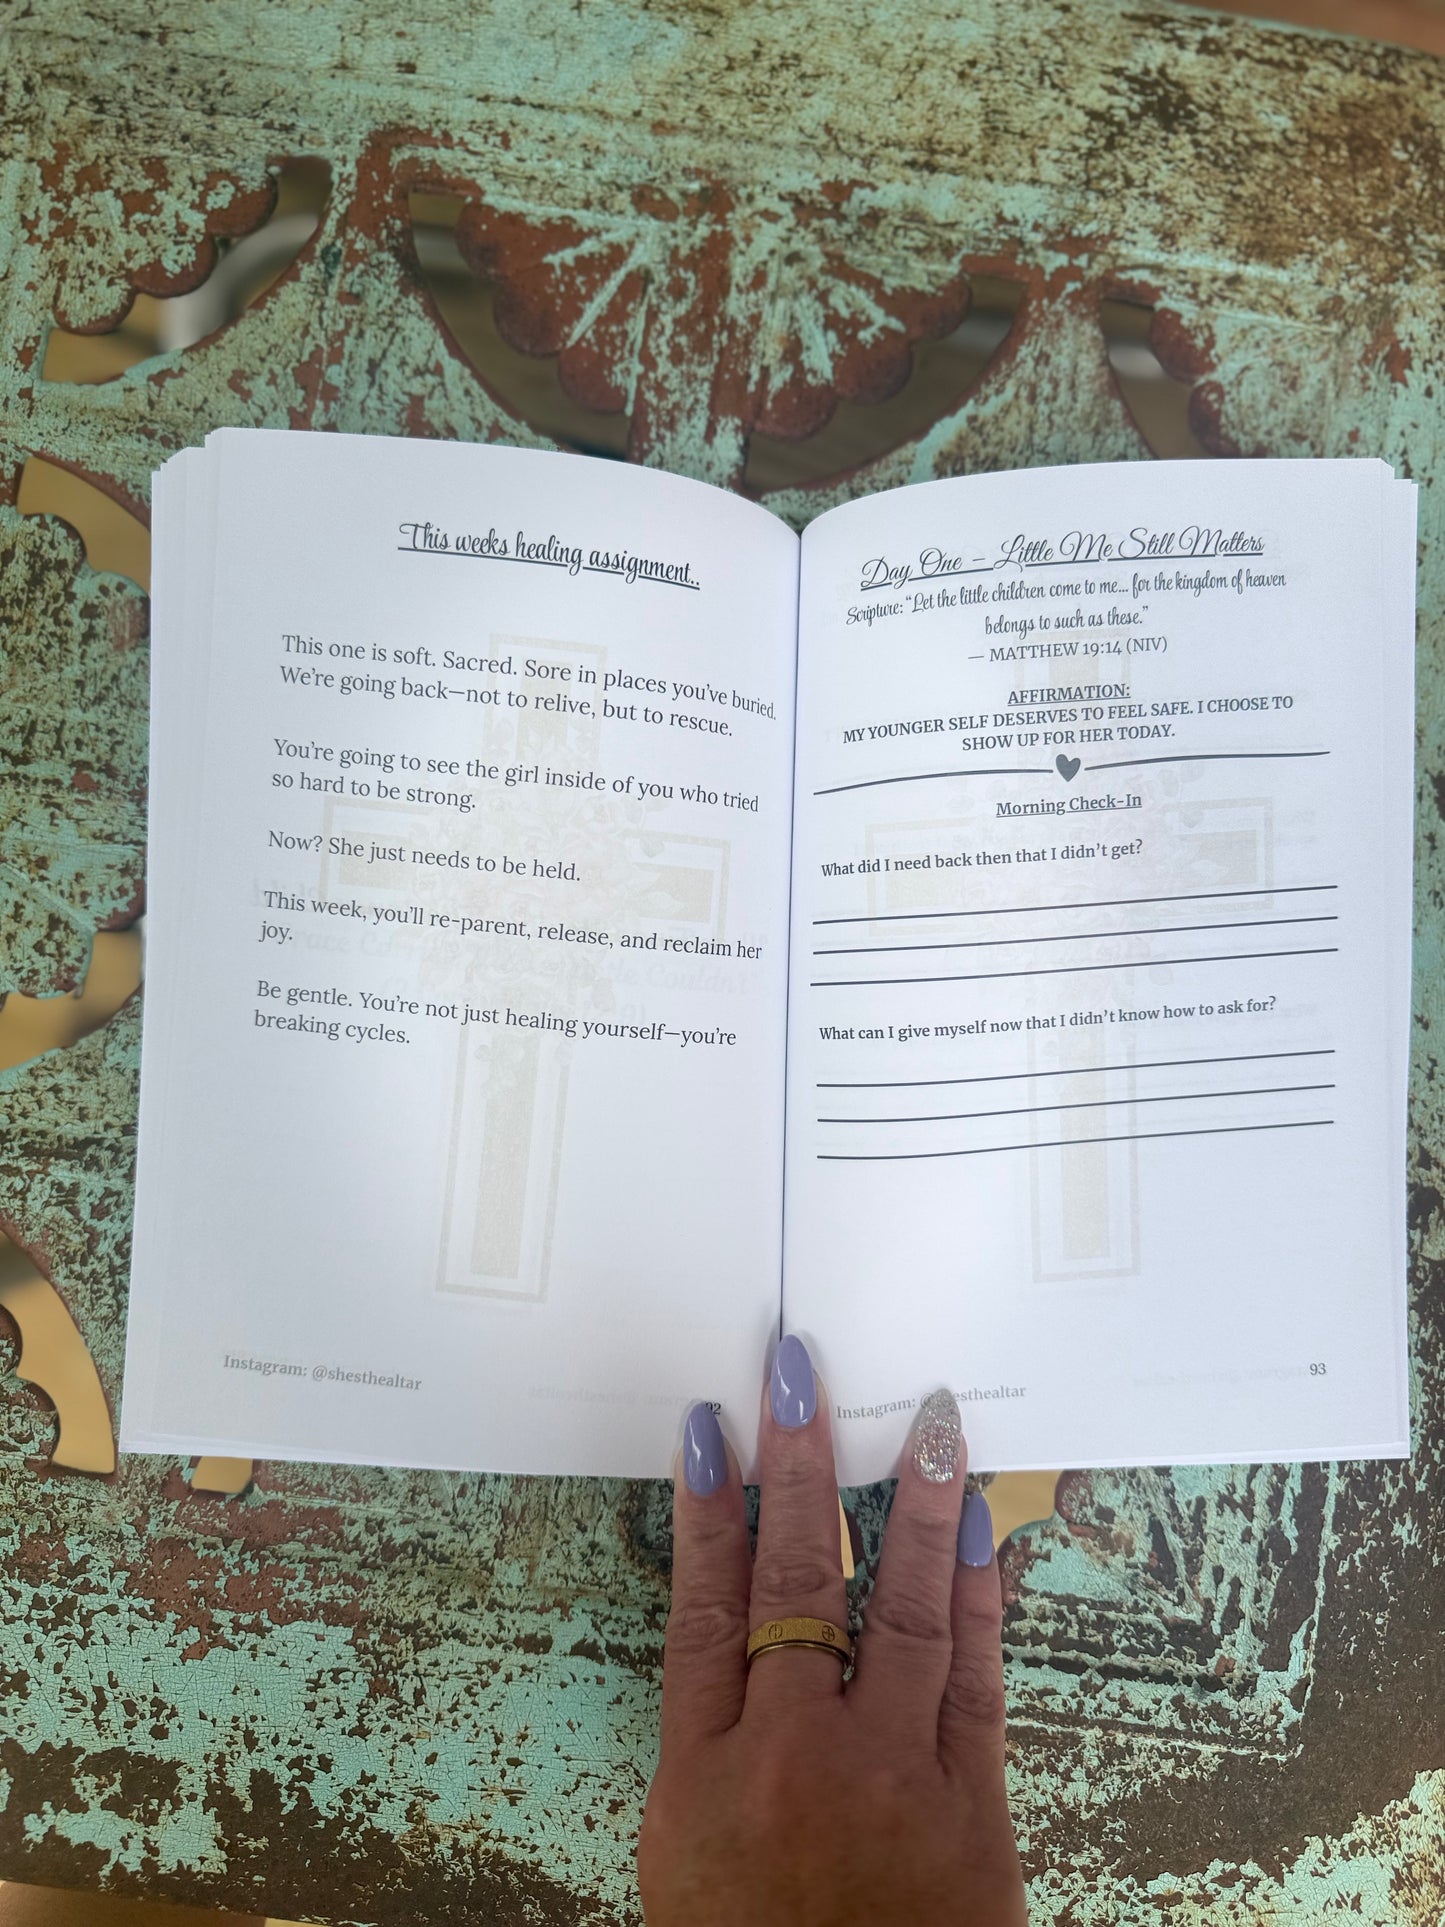 This weeks healing assignment..
This one is soft. Sacred. Sore in places you've buried.
We're going back—not to relive, but to rescue.
You're going to see the girl inside of you who tried
so hard to be strong.
Now? She just needs to be held.
This week, you'll re-parent, release, and reclaim her
joy.
Be gentle. You're not just healing yourself—you're
breaking cycles.
Instagram: @shesthealtar
92
Day One – Little Me Still Matters
Scripture: "Let the little children come to me... for the kingdom of heaven
belongs to such as these."
— MATTHEW 19:14 (NIV)
AFFIRMATION:
MY YOUNGER SELF DESERVES TO FEEL SAFE. I CHOOSE TO
SHOW UP FOR HER TODAY.
Morning Check-In
What did I need back then that I didn't get?
What can I give myself now that I didn't know how to ask for?
Instagram: @shesthealtar
93